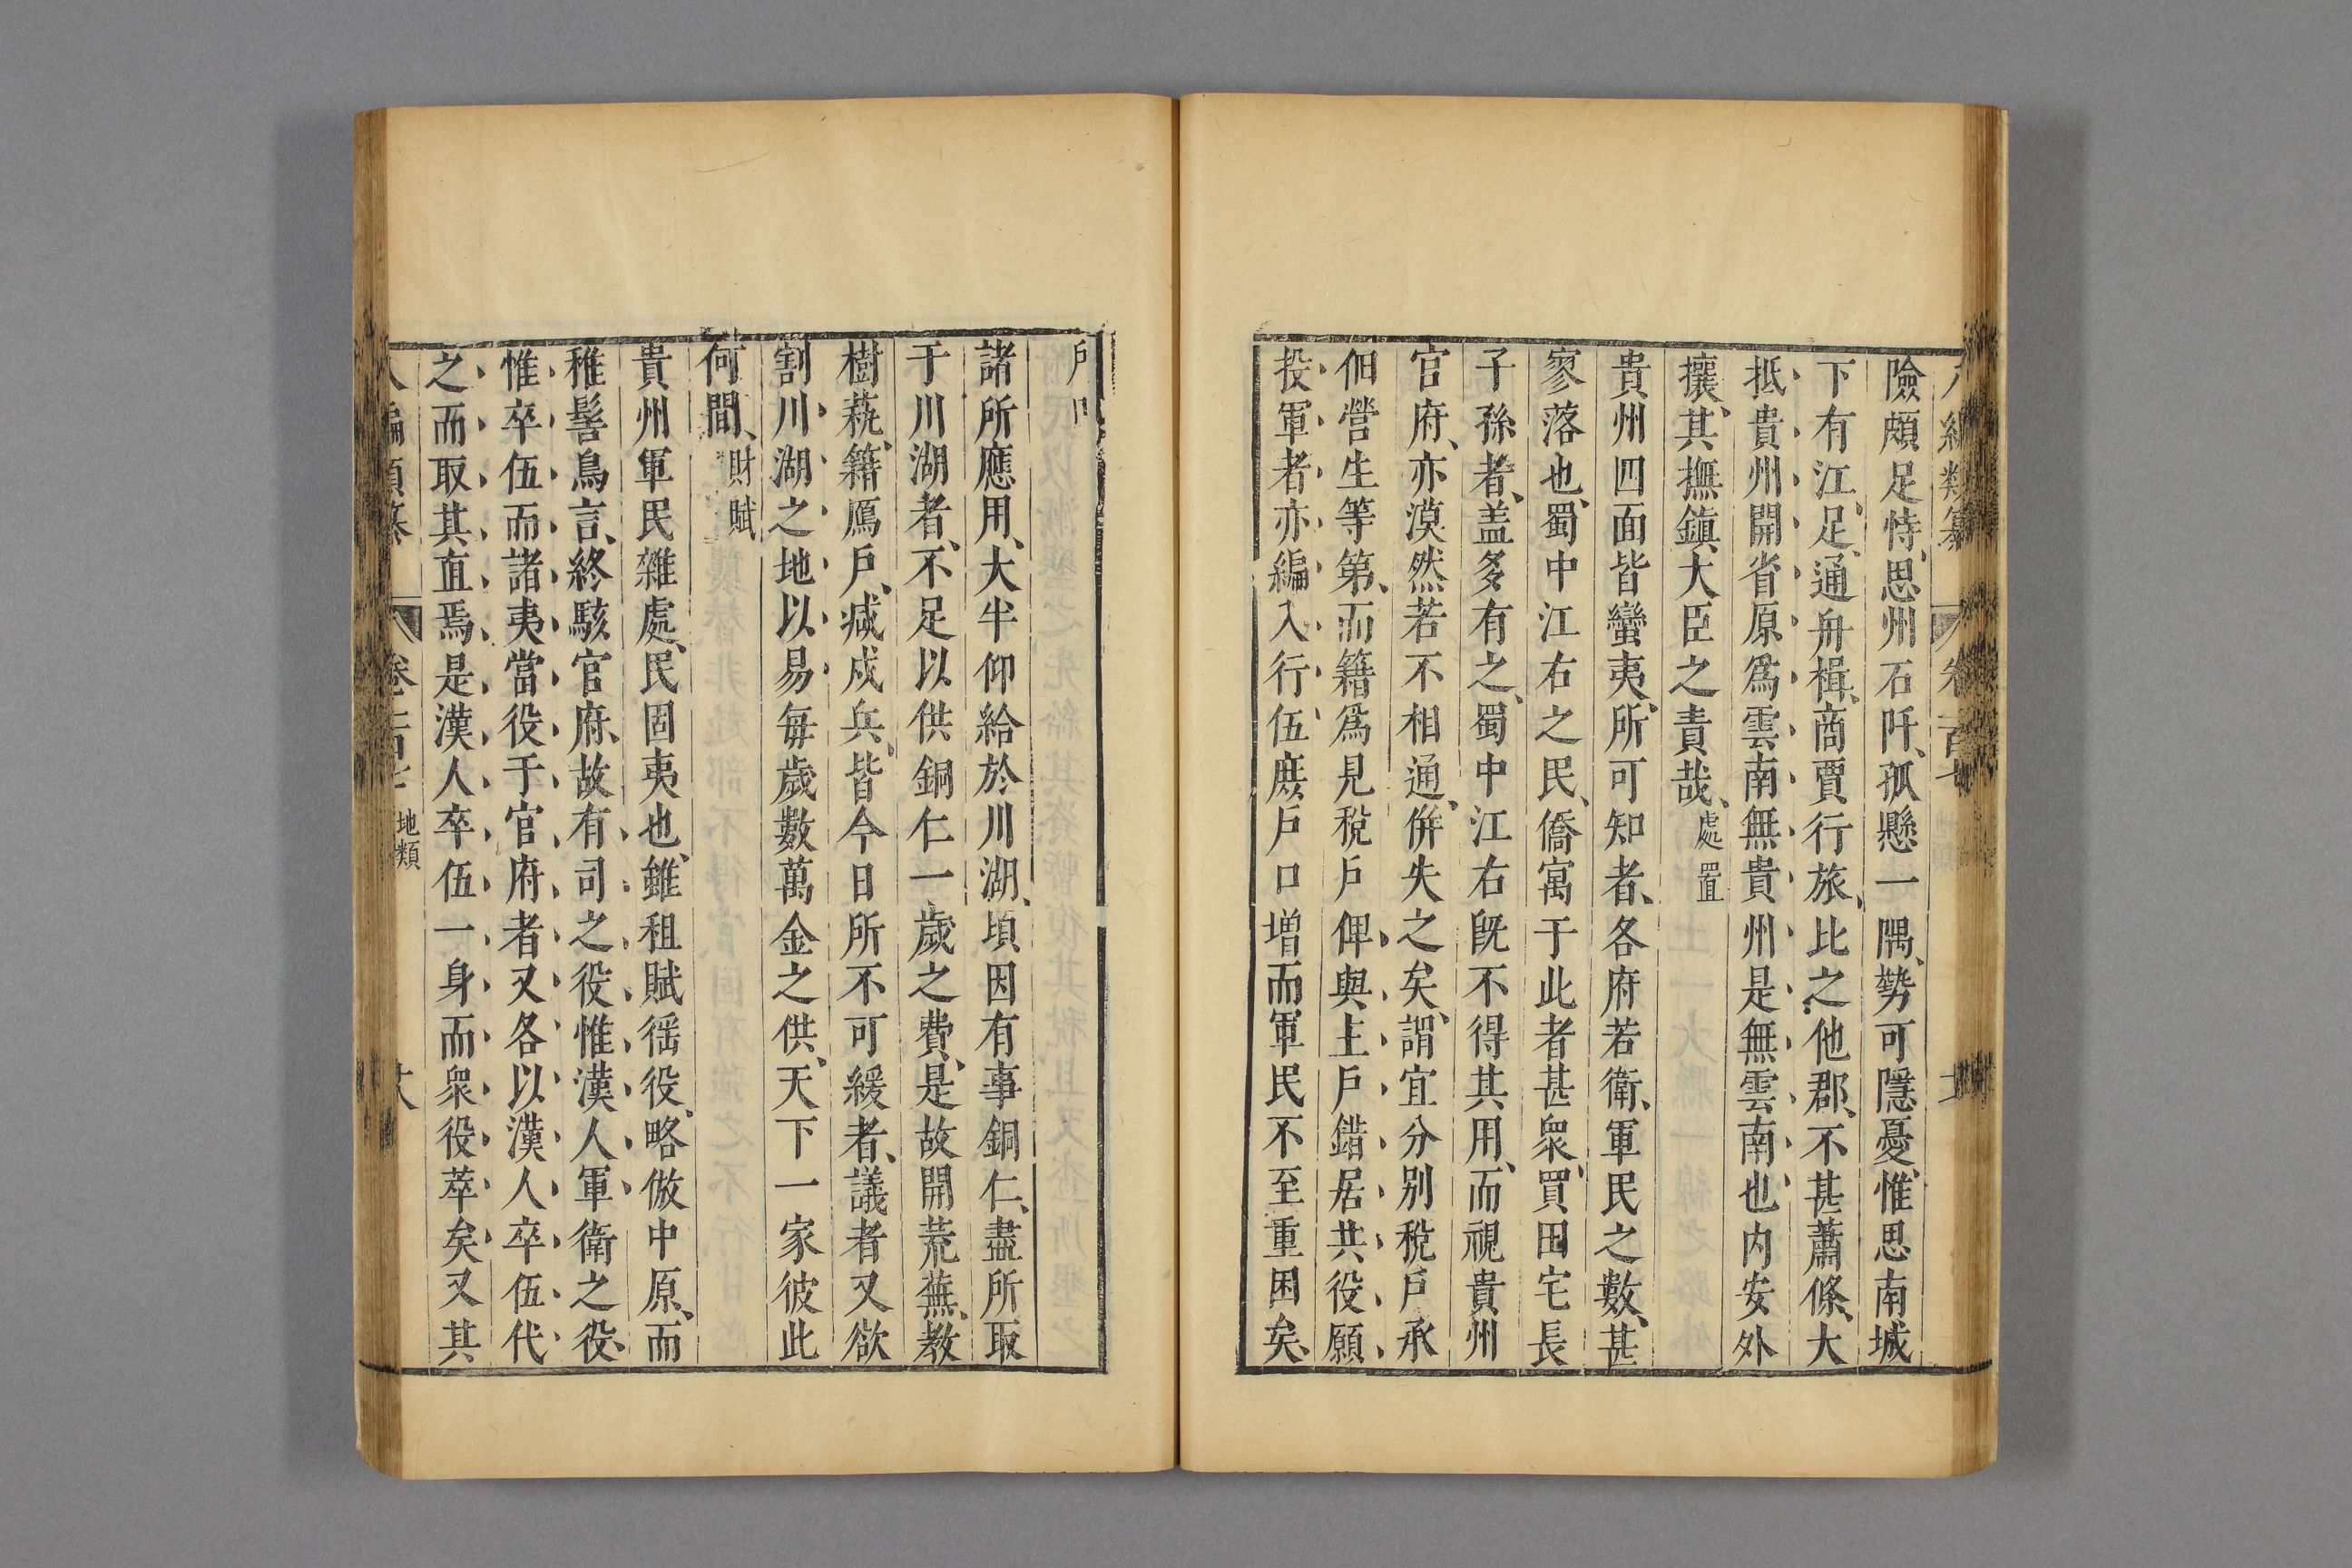 八編類纂 卷一百七
險頗足恃、思州石阡、孤懸一隅、勢可隱憂、惟思南城
下有江、足通舟楫、商賈行旅、比之他郡、不甚蕭條、大
抵貴州開省原爲雲南無貴州是無雲南也内安外
攘、其撫鎮大臣之責哉、處置
貴州四面皆蠻夷、所可知者、各府若衛、軍民之數、甚
寥落也、蜀中江右之民、僑寓于此者甚衆、買田宅長
子孫者、盖多有之、蜀中江右旣不得其用、而視貴州
官府、亦漠然若不相通、倂失之矣、謂宜分別稅戶承
佃營生等第、而籍爲見稅戶俾與主戶錯居共役願
投軍者亦編入行伍庶戶口增而軍民不至重困矣、
戶口
諸所應用、大半仰給於川湖、頃因有事銅仁、盡所取
于川湖者、不足以供銅仁一歲之費、是故開荒蕪、教
樹蓺、籍鴈戶、減戍兵、皆今日所不可緩者、議者又欲
割川湖之地以易每歲數萬金之供、天下一家彼此
何間、財賦
貴州軍民雜處、民固夷也、雖租賦徭役、略倣中原、而
稚髻鳥言、終駭官府、故有司之役惟漢人軍衛之役、
惟卒伍而諸夷當役于官府者又各以漢人卒伍代
之而取其直焉、是漢人卒伍一身而衆役萃矣又其
八編類纂 卷一百七 地類 十八